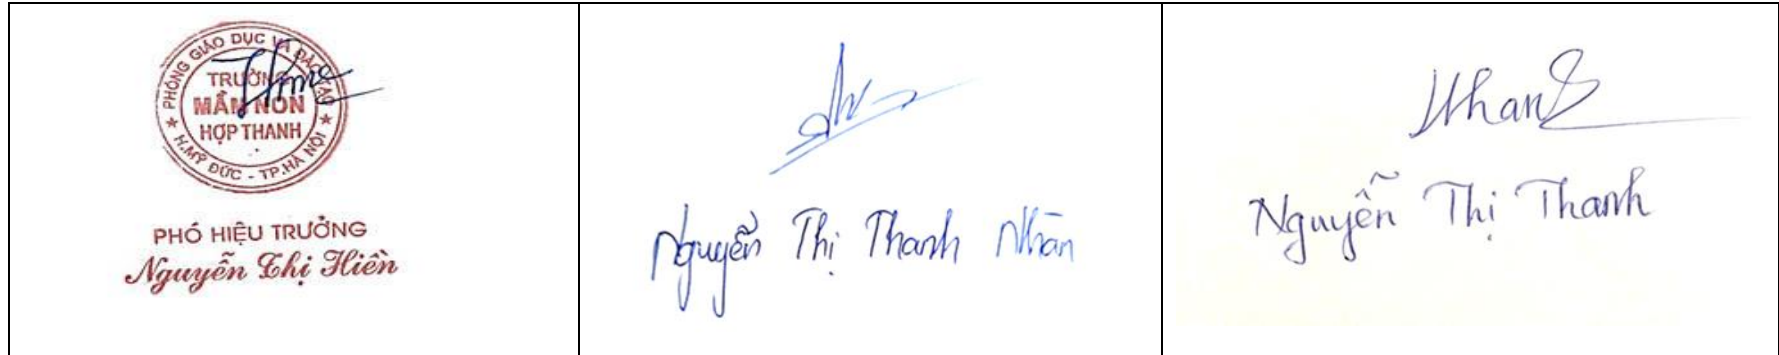 PHÒNG GIÁO DỤC VÀ ĐÀO TẠO
TRƯỜNG
MẦM NON
HỢP THANH
★ H.MỸ ĐỨC - TP.HÀ NỘI ★
PHÓ HIỆU TRƯỞNG
Nguyễn Thị Hiền
Nguyễn Thị Thanh Nhàn
Thanh
Nguyễn Thị Thanh